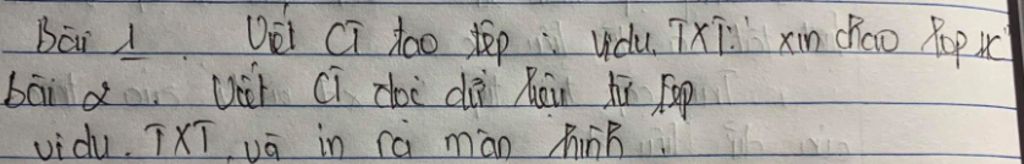 Bài 1. Viết CT tạo tệp : vidu.TXT: xin chao lop
bài 2. Viết CT đọc dữ liệu từ tệp
vidu.TXT và in ra màn hình.